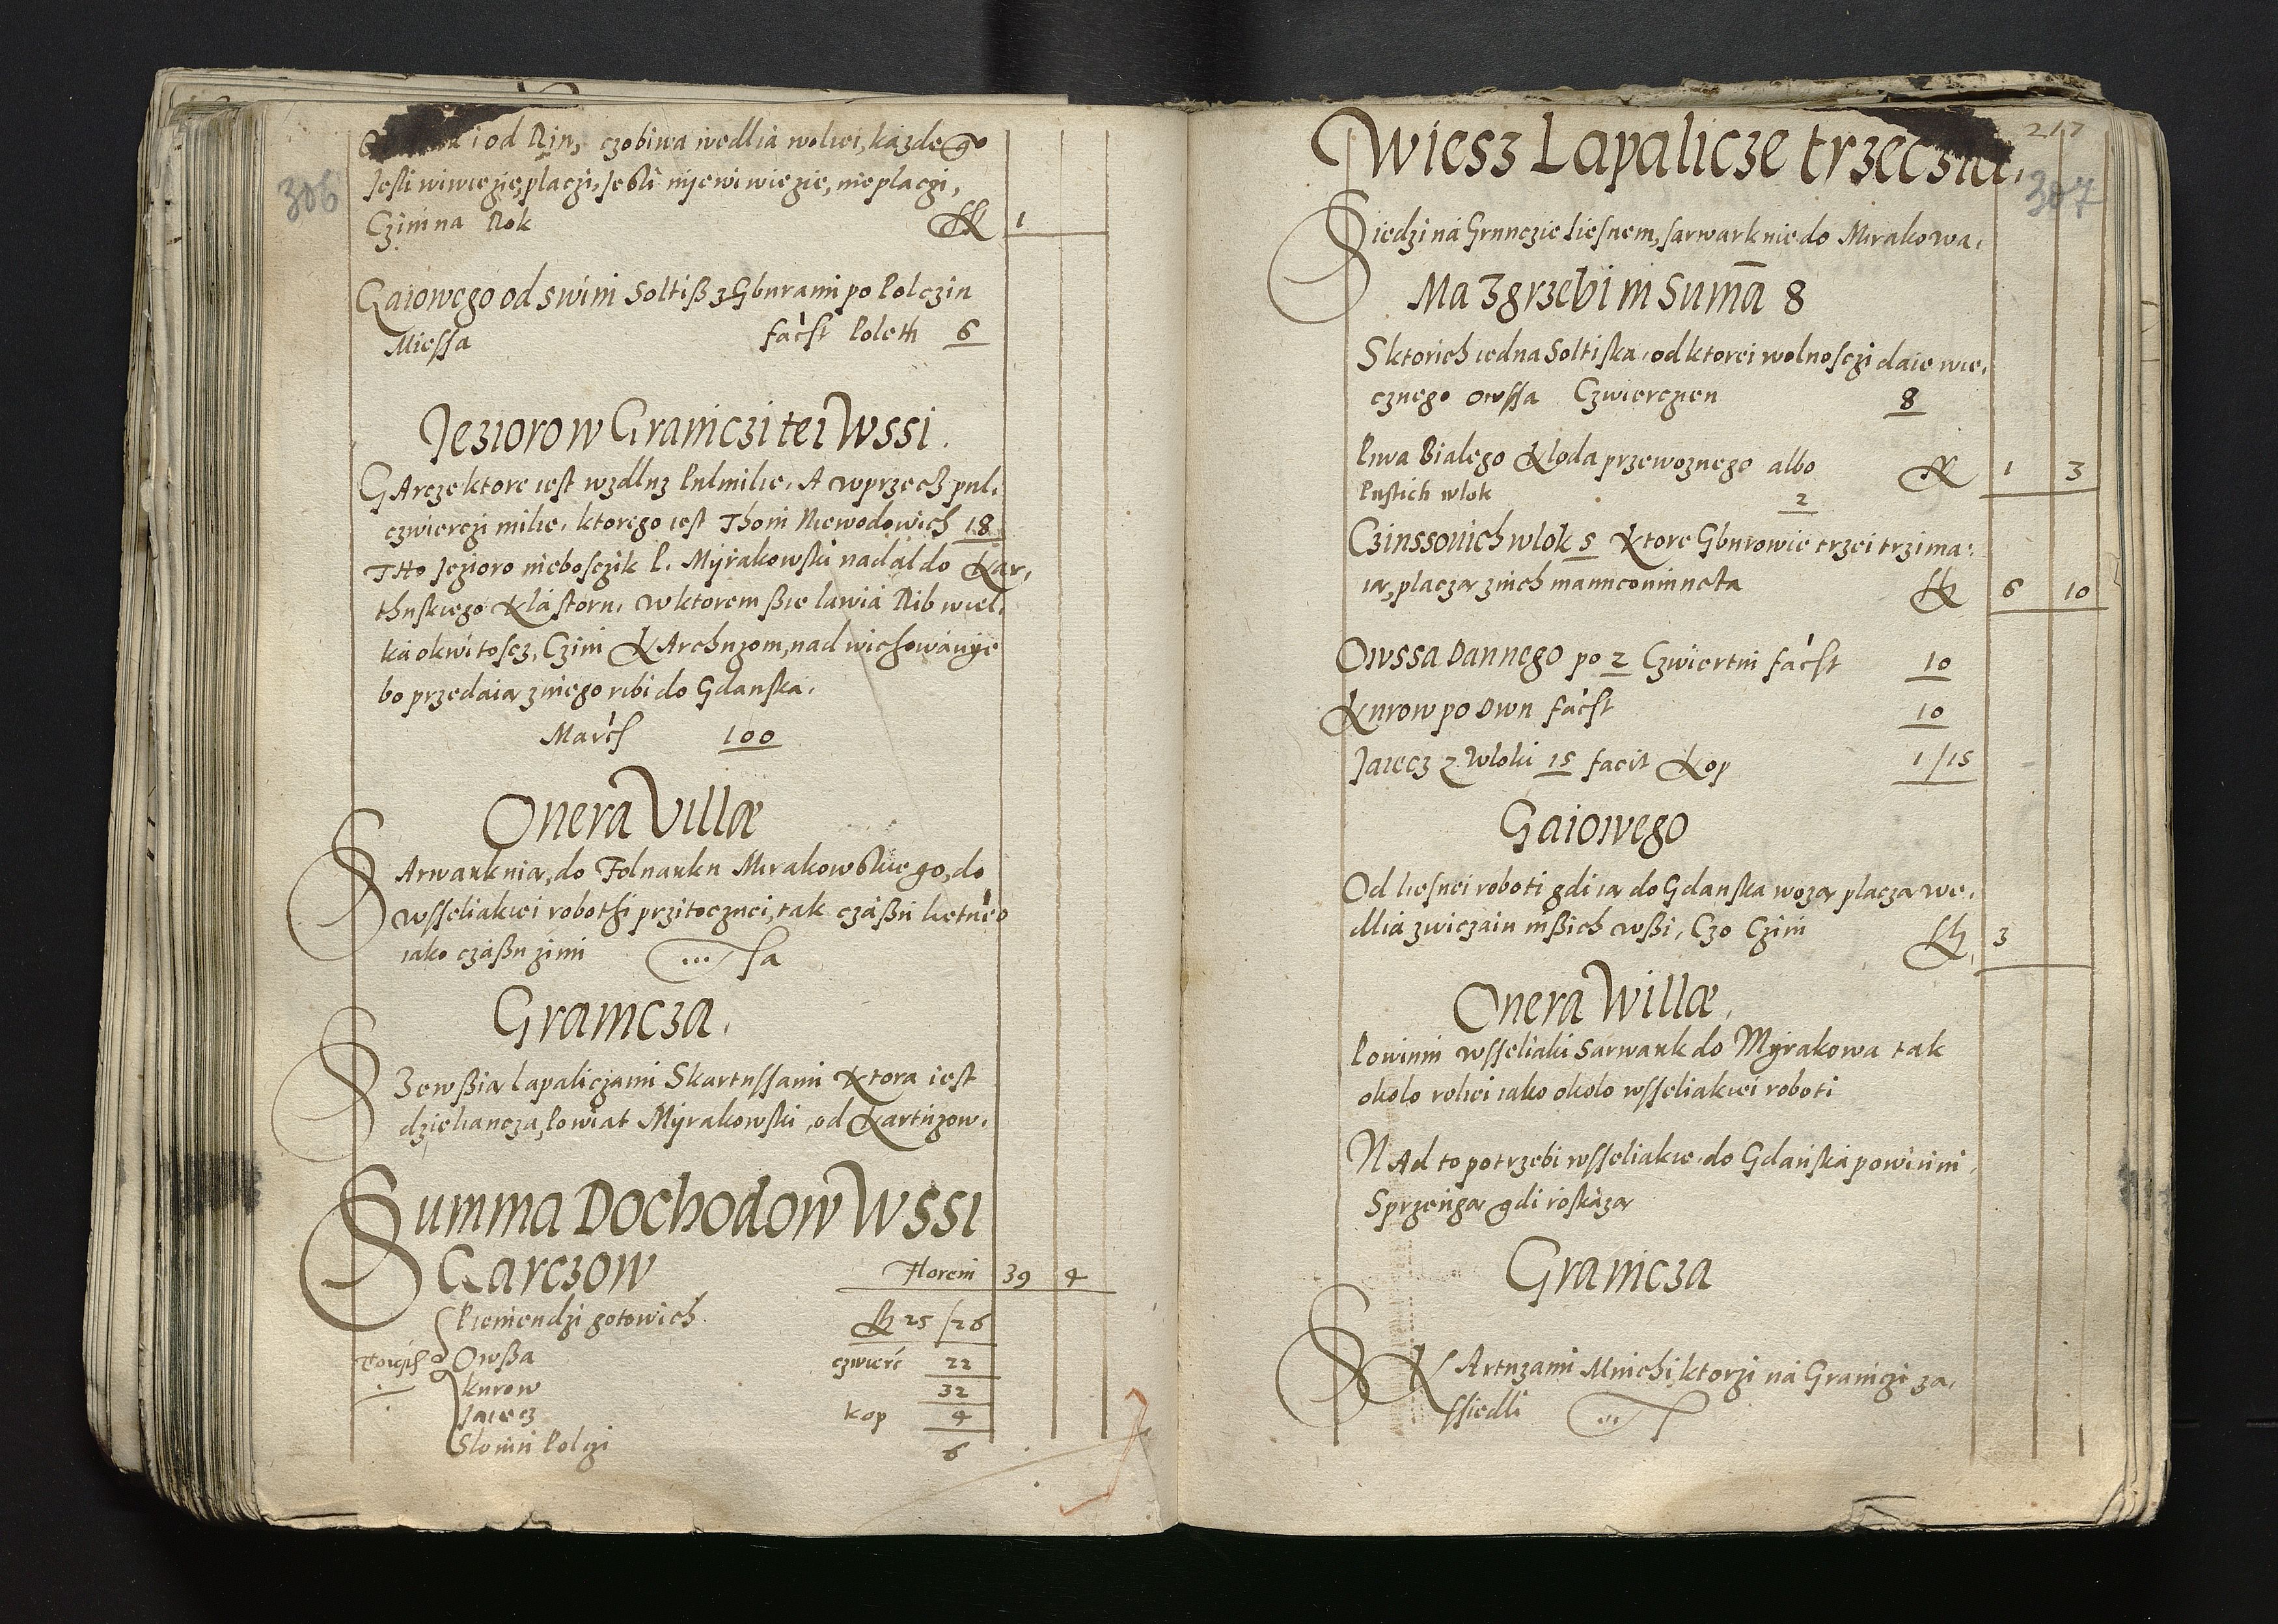 306
i od Rin, czobiwa wedlia woliei, kazdego
Jesli wiwiezie, placzi, Jesli nijewiwiezie, nieplaczi,
Czini na Rok 1
Gaiowego od swini Soltiß z Gburami po Polczin
Miessa facst Poleth 6
Jezioro w Graniczi tei Wssi.
GArcze ktore iest wzdluz Pulmilie, A wprzecz pul,
czwierczi milie, ktorego iest Thoni Niewodowich 18
THo Jezioro nieboszik P. Myrakowski nadal do Kar,
thuskiego Klastoru, w ktorem ßie lawia Rib wiel,
ka okwitoscz, Czini KArchuzom, nad wichowanije
bo przedaia z niego ribi do Gdanska.
Marcs 100
Onera Villæ
SArwarknia, do Folwarku Mirakowskiego, do
wsseliakiei robothi przitocznei, tak czaßu lietneo
iako czaßu zimi
Granicza.
SZewßia Lapaliczami Skartussami Ktora iest
dzieliancza, Powiat Myrakowski, od Kartuzow.
Summa Dochodow Wssi
Garczow Floreni 39 4
Pieniendzi gotowich 25/26
Owßa czwierc 22
Kurow 32
Jaiecz kop 4
Slonini Polczi 6
217
307
Wiesz Lapalicze trzeczia.
Siedzi na Grunczie Liesnem, sarwarknie do Mirakowa.
Ma Zgrzebim Suma 8
S ktorich iedna Soltiska, od ktorei wolnosczi daie wie,
cznego owssa Czwierczen 8
Piwa Bialego Kloda przewoznego albo 1 3
Pustich wlok 2
Czinssowich wlok 5 Ktore Gburowie trzei trzima,
ia, placza z nich manu coniuncta 6 10
Owssa Dannego po 2 Czwiertni facst 10
Kurow po Dwu facst 10
Jaiecz z Wloki 15 facit Kop 1/15
Gaiowego
Od liesnei roboti gdi ia do Gdanska woza placza we,
dlia zwiczaiu inßich wßi, Czo Czini 3
Onera Willæ.
Powinni wsseliaki Sarwark do Myrakowa tak
okolo roliei iako okolo wsseliakiei roboti
NAd to potrzebi wsseliakie do Gdanska powinni,
Sprzenga gdi roskaza
Granicza
S KArtuzami Mnichi, ktorzi na Granici za,
ssiedli